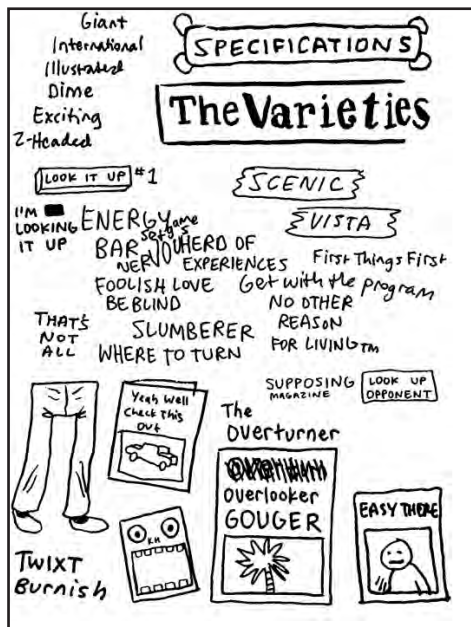 Giant
International
Illustrated
Dime
Exciting
2-Headed
SPECIFICATIONS
The Varieties
LOOK IT UP #1
SCENIC
VISTA
I'M
LOOKING
IT UP
ENERGY
game
set
BAR
NER
YOU
HERD OF
EXPERIENCES
First Things First
FOOLISH LOVE
Get with the program
BE BLIND
NO OTHER
REASON
FOR LIVING TM
THAT'S
NOT
ALL
SLUMBERER
WHERE TO TURN
SUPPOSING
MAGAZINE
LOOK UP
OPPONENT
Yeah Well
Check This
Out
The
Overturner
Overlooker
GOUGER
EASY THERE
KH
TWIXT
Burnish